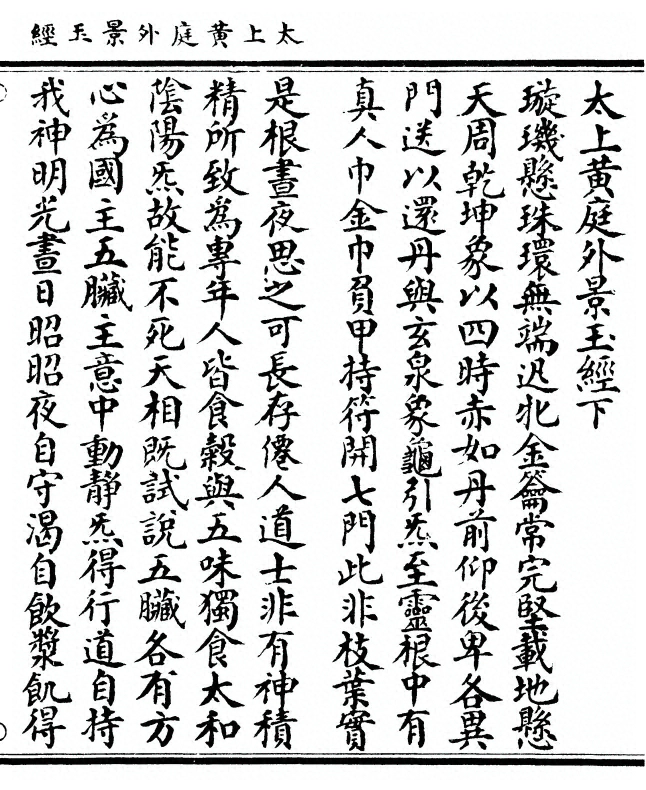 太上黄庭外景玉經
太上黄庭外景玉經下
璇璣懸珠環無端迅牝金籥常完堅載地懸
天周乾坤象以四時赤如丹前仰後卑各異
門送以還丹與玄泉象龜引炁至靈根中有
真人巾金巾負甲持符開七門此非枝葉實
是根晝夜思之可長存僊人道士非有神積
精所致為專年人皆食穀與五味獨食太和
陰陽炁故能不死天相既試說五臟各有方
心為國主五臟主意中動靜炁得行道自持
我神明光晝日昭昭夜自守渴自飲漿飢得